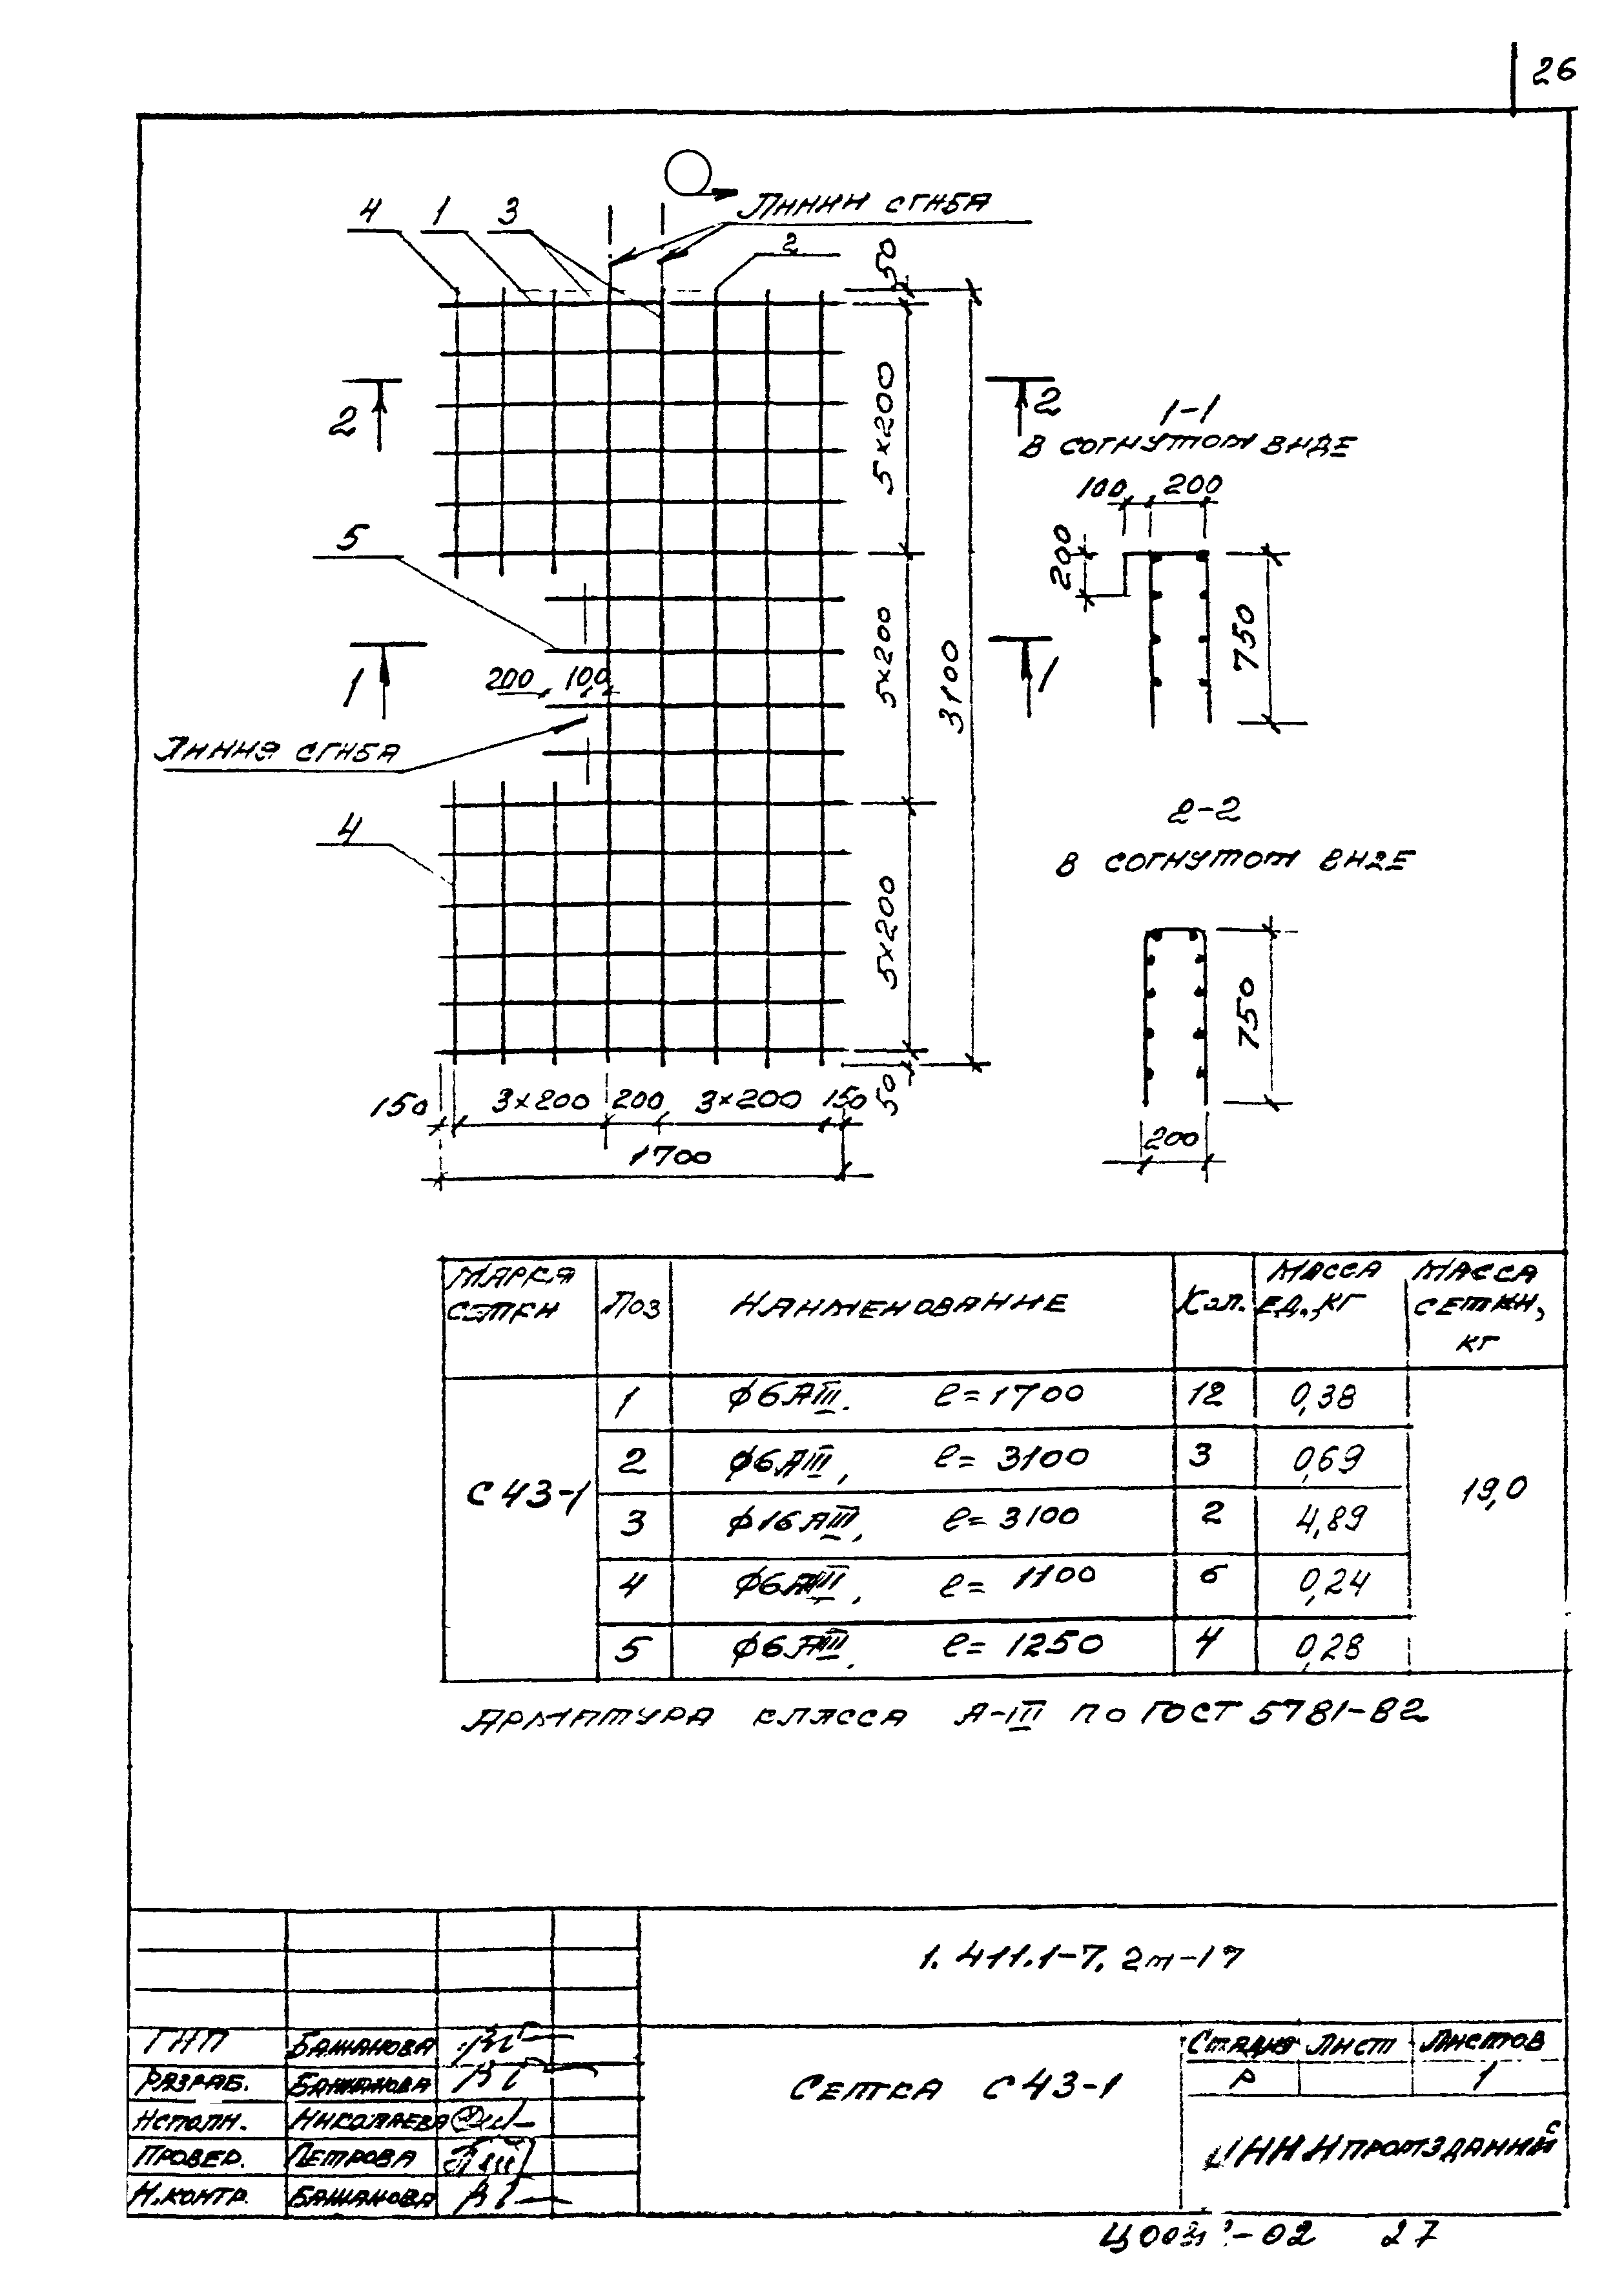 26
Линии сгиба
4 1 3
2
50
5×200
2 2
1-1
в согнутом виде
100 200
200
750
5
5×200
3100
1 1
200 100
Линия сгиба
2-2
в согнутом виде
4
5×200
750
200
150 3×200 200 3×200 150 50
1700
Марка сетки Поз Наименование Кол. Масса ед., кг Масса сетки, кг
С43-1 19,0
1 ϕ6АIII. ℓ=1700 12 0,38
2 ϕ6АIII, ℓ= 3100 3 0,69
3 ϕ16АIII, ℓ= 3100 2 4,89
4 ϕ6АIII, ℓ= 1100 6 0,24
5 ϕ6АIII. ℓ= 1250 4 0,28
Арматура класса А-III по ГОСТ 5781-82
1.411.1-7. 2т-17
ГИП Бажанова
Разраб. Бажанова
Исполн. Николаева
Провер. Петрова
Н.контр. Бажанова
Сетка С43-1
Стадия Лист Листов
Р 1
ЦНИИпромзданий
-02 27